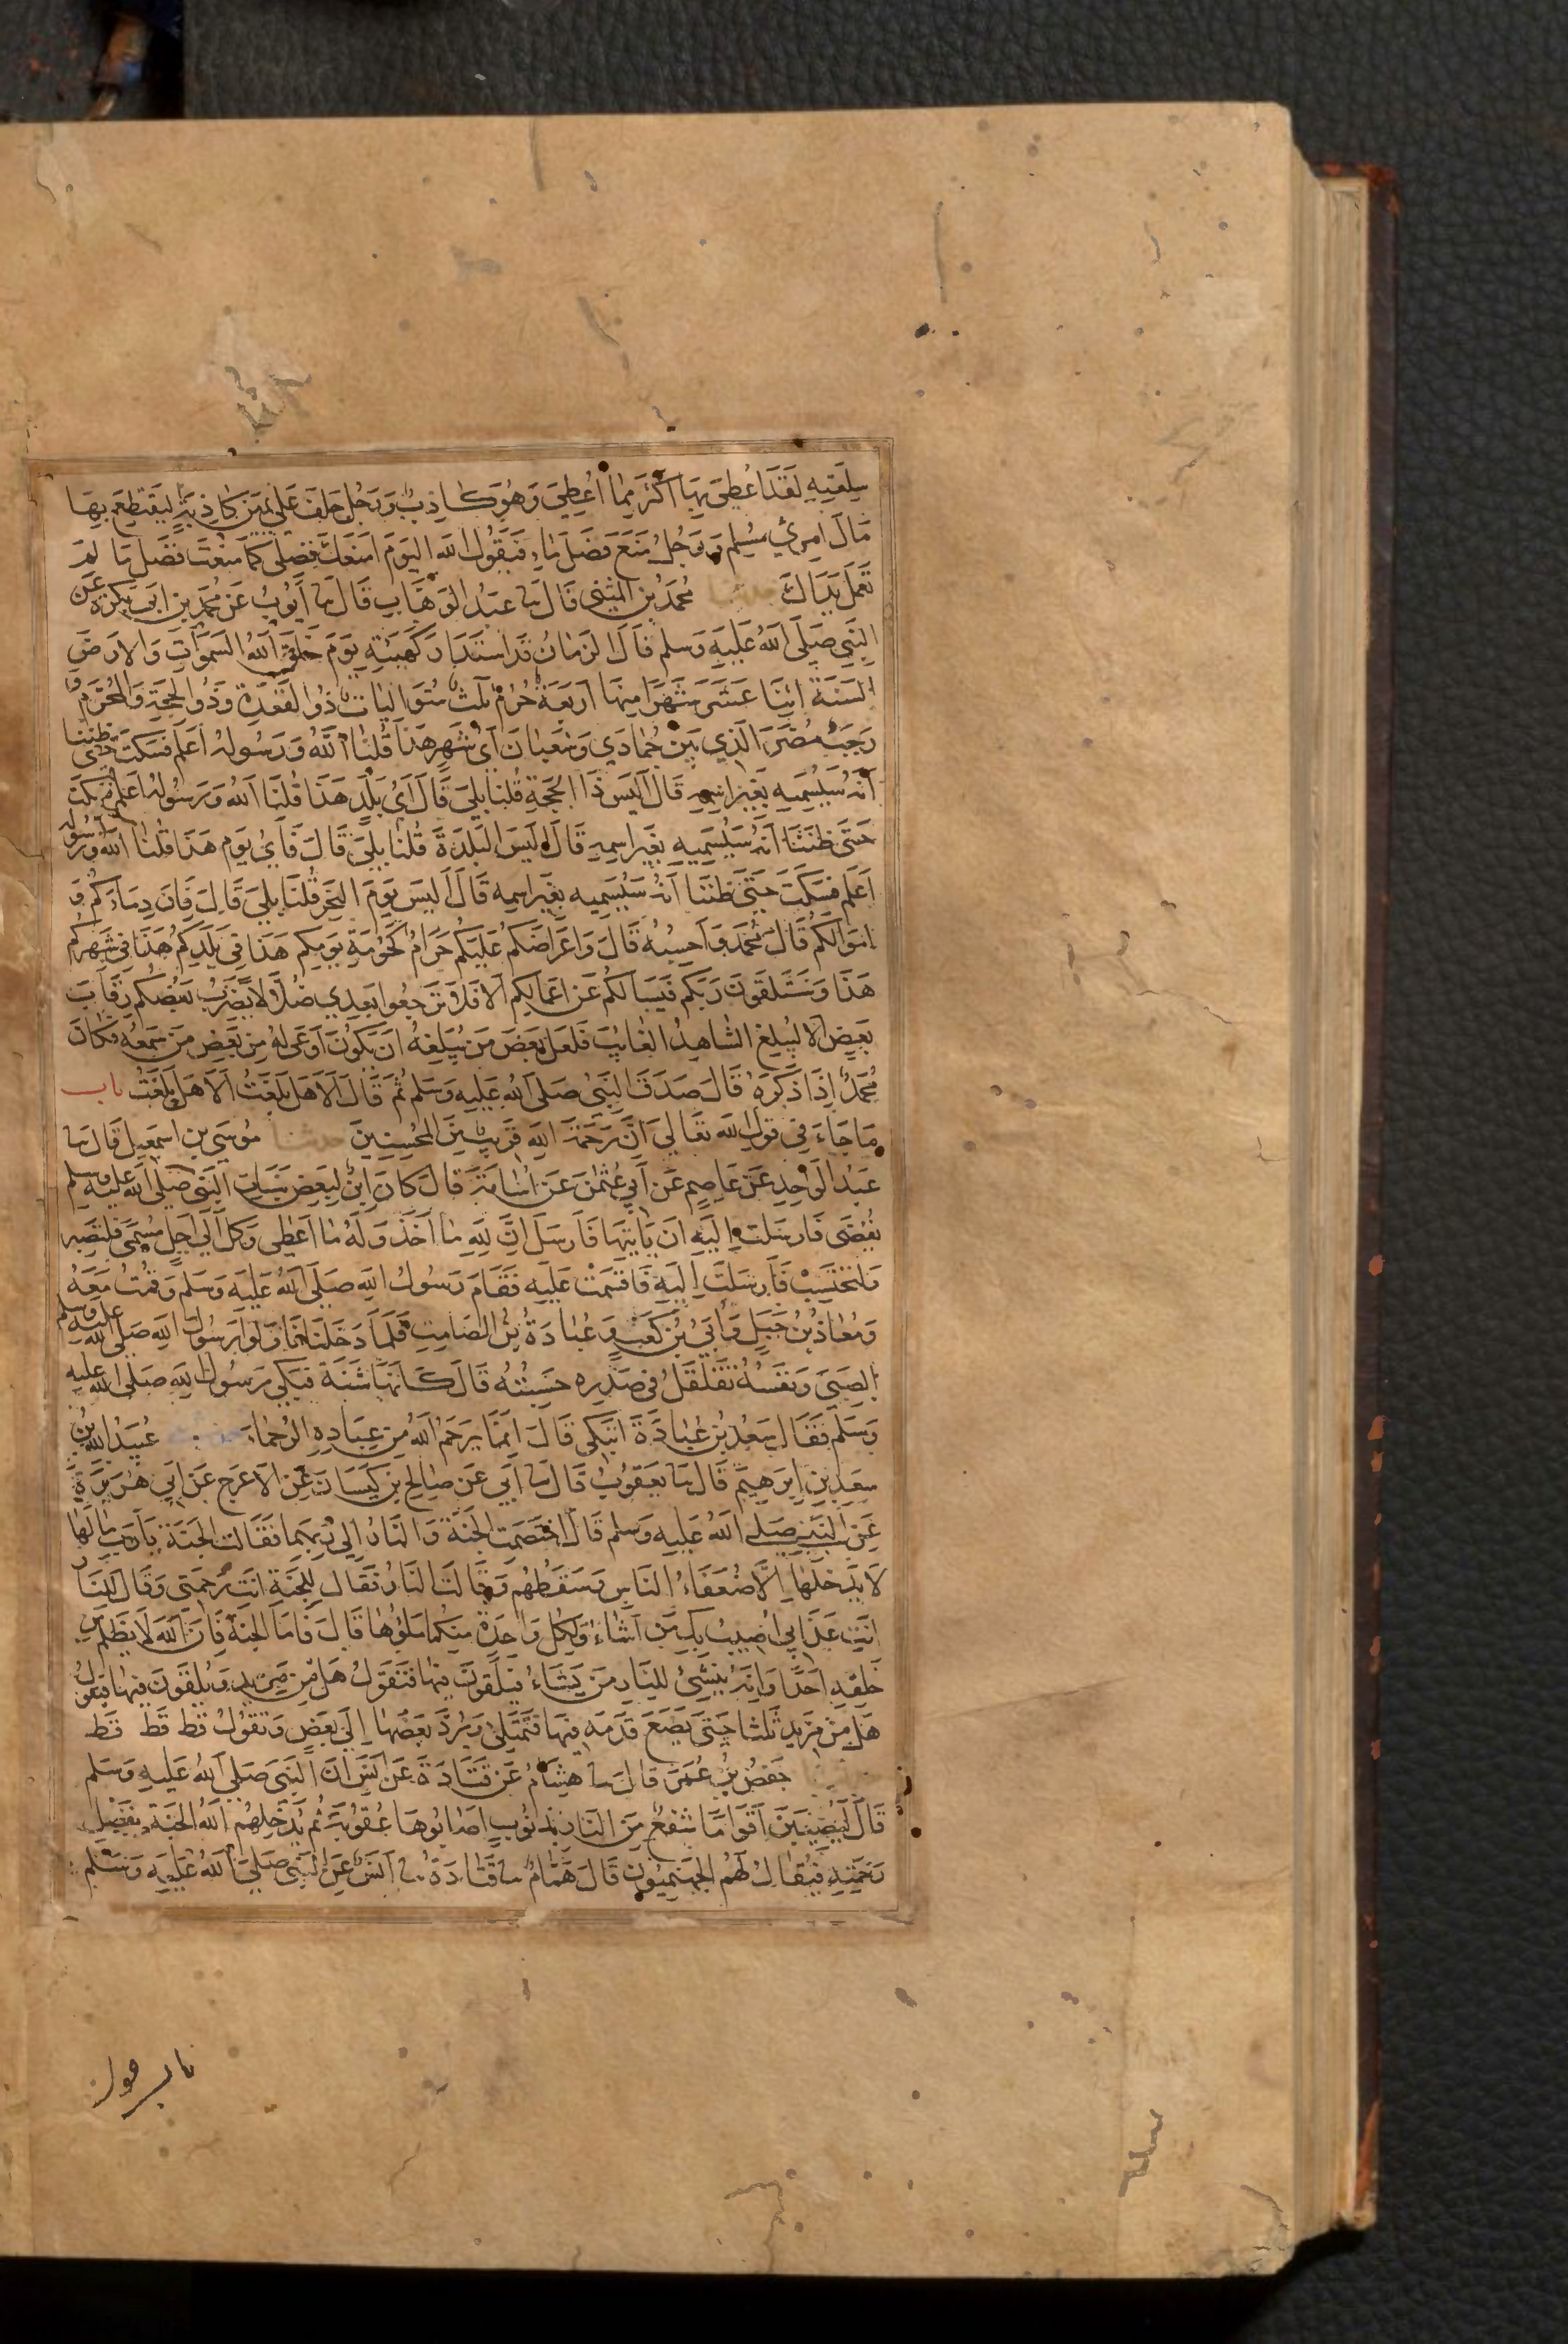 سلعته لقد اعطي بها اكثر مما اعطي وهو كاذب ورجل حلف علي يمين كاذبة ليقتطع بها
مال امرئ مسلم ورجل منع فضل ماء فيقول الله اليوم امنعك فضلي كما منعت فضل ما لم
تعمل يداك حدثنا محمد بن المثني قال نا عبد الوهاب قال نا ايوب عن محمد بن ابي بكرة عن
النبي صلى الله عليه وسلم قال الزمان قد استدار كهيئته يوم خلق الله السموات والارض
السنة اثنا عشر شهرا منها اربعة حرم ثلث متواليات ذوا القعدة وذوا الحجة والمحرم و
رجب مضر الذي بين جمادي وشعبان اى شهر هذا قلنا الله ورسوله اعلم فسكت حتى ظننا
انه سيسميه بغير اسمه قال اليس ذا الحجة قلنا بلي قال اى بلد هذا قلنا الله ورسوله اعلم فسكت
حتى ظننا انه سيسميه بغير اسمه قال اليس البلدة قلنا بلي قال فاي يوم هذا قلنا الله ورسوله
اعلم فسكت حتى ظننا انه سيسميه بغير اسمه قال اليس يوم النحر قلنا بلي قال فان دماءكم و
اموالكم قال محمد واحسبه قال واعراضكم عليكم حرام كحرمة يومكم هذا في بلدكم هذا في شهركم
هذا وستلقون ربكم فيسالكم عن اعمالكم الا فلا ترجعوا بعدي ضلالا يضرب بعضكم رقاب
بعض الا ليبلغ الشاهد الغايب فلعل بعض من يبلغه ان يكون اوعى له من بعض من سمعه فكان
محمد اذا ذكره قال صدق النبي صلى الله عليه وسلم ثم قال الا هل بلغت الا هل بلغت باب
ما جاء في قول الله تعالي ان رحمة الله قريب من المحسنين حدثنا موسي بن اسمعيل قال نا
عبد الواحد عن عاصم عن ابي عثمن عن اسامة قال كان ابن لبعض بنات النبي صلى الله عليه وسلم
يقضى فارسلت اليه ان ياتيها فارسل ان لله ما اخذ وله ما اعطي وكل الي اجل مسمى فلتصبر
ولتحتسب فارسلت اليه فاقسمت عليه فقام رسول الله صلى الله عليه وسلم وقمت معه
ومعاذ بن جبل وابي بن كعب وعبادة بن الصامت فلما دخلنا ناولوا رسول الله صلى الله عليه وسلم
الصبي ونفسه تقلقل في صدره حسبته قال كانها شنة فبكي رسول الله صلى الله عليه
وسلم فقال سعد بن عبادة اتبكي قال انما يرحم الله من عباده الرحماء عبيد الله بن
سعد بن ابرهيم قال نا يعقوب قال نا ابي عن صالح بن كيسان عن الاعرج عن ابي هريرة
عن النبي صلى الله عليه وسلم قال اختصمت الجنة والنار الي ربهما فقالت الجنة يا رب ما لها
لا يدخلها الا ضعفاء الناس وسقطهم وقالت النار فقال للجنة انت رحمتي وقال للنار
انت عذابي اصيب بك من اشاء ولكل واحدة منكما ملؤها قال فاما الجنة فان الله لا يظلم من
خلقه احدا وانه ينشئ للنار من يشاء فيلقون فيها فتقول هل من مزيد ويلقون فيها فتقول
هل من مزيد ثلثا حتى يضع قدمه فيها فتمتلي ويرد بعضها الي بعض وتقول قط قط قط
حفص بن عمر قال نا هشام عن قتادة عن انس ان النبي صلي الله عليه وسلم
قال ليصيبن اقواما سفع من النار بذنوب اصابوها عقوبة ثم يدخلهم الله الجنة بفضل
رحمته فيقال لهم الجهنميون قال همام نا قتادة نا انس عن النبي صلى الله عليه وسلم
باب قول